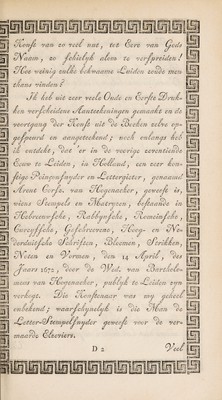 Konst van zo veel nut, tot Eere van Gods
Naam, zo feitelyk alom te verspreiden!
Hoe weinig zulke bekwaame Luiden zoude men
thans vinden?
Ik heb uit zeer veele Oude en Eerste Druk-
ken verscheidene Aantekeningen gemaakt en de
voortgang der Konst uit de Boeken zelve op-
gespeurd en aangetekend; noch onlangs heb
ik ontdekt, dat 'er in de voorige zeventiende
Eeuw te Leiden, in Holland, een zeer kon-
stige Printensnyder en Lettergieter, genaamd
Arent Corsz. van Hogenacker, geweest is,
wiens Stempels en Matryzen, bestaande in
Hebreeuwsche, Rabbynsche, Romeinsche,
Curcyfsche, Geschreevene, Hoog- en Ne-
derduitsche Schriften, Bloemen, Strikken,
Noten en Vormen, den 14 April, des
Jaars 1672, door de Wed. van Bartholo-
meus van Hogenacker, publyk te Leiden zyn
verkogt. Die Konstenaar was my geheel
onbekend; waarschynelyk is die Man de
Letter-Stempelsnyder geweest voor de ver-
maarde Elzeviers.
D 2 Veel